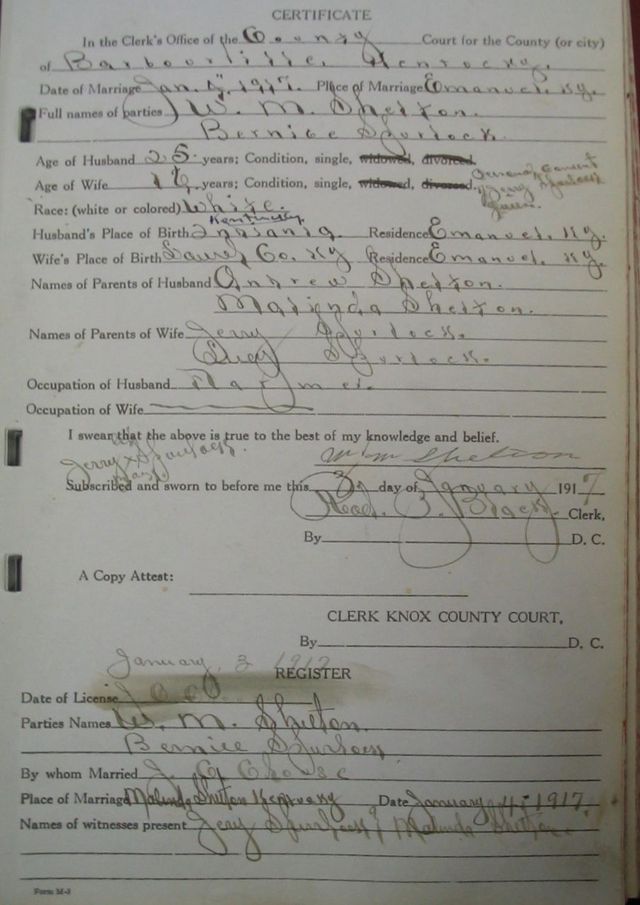 CERTIFICATE
In the Clerk's Office of the County Court for the County (or city)
of Barbourville, Kentucky.
Date of Marriage Jan. 4, 1917. Place of Marriage Emanuel, Ky.
Full names of parties W. M. Shelton.
Bernice Spurlock.
Age of Husband 25 years; Condition, single, widowed, divorced.
Age of Wife 16 years; Condition, single, widowed, divorced.
Jerry Spurlock
given.
Race: (white or colored) White.
Kentucky
Husband's Place of Birth Residence Emanuel, Ky.
Wife's Place of Birth Laurel Co. Ky Residence Emanuel, Ky.
Names of Parents of Husband Andrew Shelton.
Malinda Shelton.
Names of Parents of Wife Jerry Spurlock.
Spurlock.
Occupation of Husband Farmer.
Occupation of Wife
I swear that the above is true to the best of my knowledge and belief.
Jerry X Spurlock.
W M Shelton
Subscribed and sworn to before me this 3 day of January 1917
Read P. Black. Clerk,
By D. C.
A Copy Attest:
CLERK KNOX COUNTY COURT,
By D. C.
January 3 1917
REGISTER
Date of License
Parties Names W. M. Shelton.
Bernice Spurlock
By whom Married J. C.
Place of Marriage Malinda Shelton Kentucky Date January 4, 1917
Names of witnesses present Jery Spurlock Malinda Shelton.
Form M-3